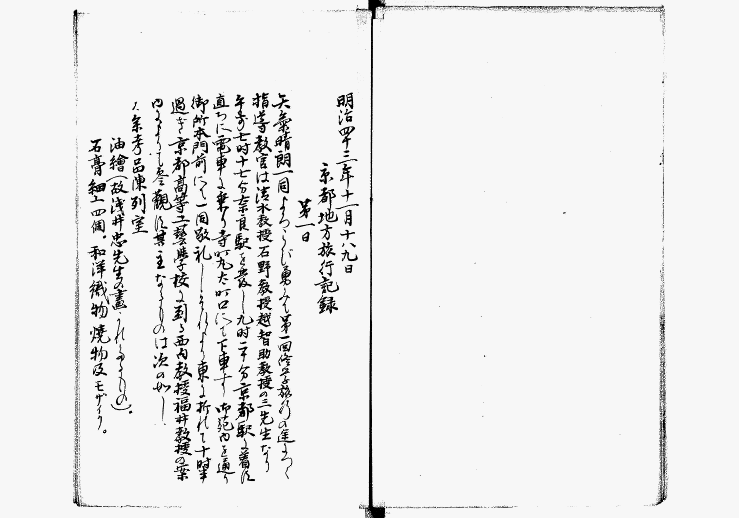 明治四十三年十一月十八九日
京都地方旅行記録
第一日
天気晴朗一同よろこび勇みて第一回修学旅行の途につく
指導教官は清水教授石野教授越智助教授の三先生なり
午前七时十七分奈良駅を発し九时二十分京都駅に着す
直ちに電車に乗り寺町丸太町口にて下車す 御苑内を通り
御所本門前にて一同敬礼しそれより東に折れて十时半
過ぎ京都高等工藝学校に到る 西内教授福井教授の案
内によりて参観す其主なるものは次の如し
イ、参考品陳列室
油繪(故浅井忠先生の畫かれたるもの)。
石膏細工四個。和洋織物燒物及モザイク。